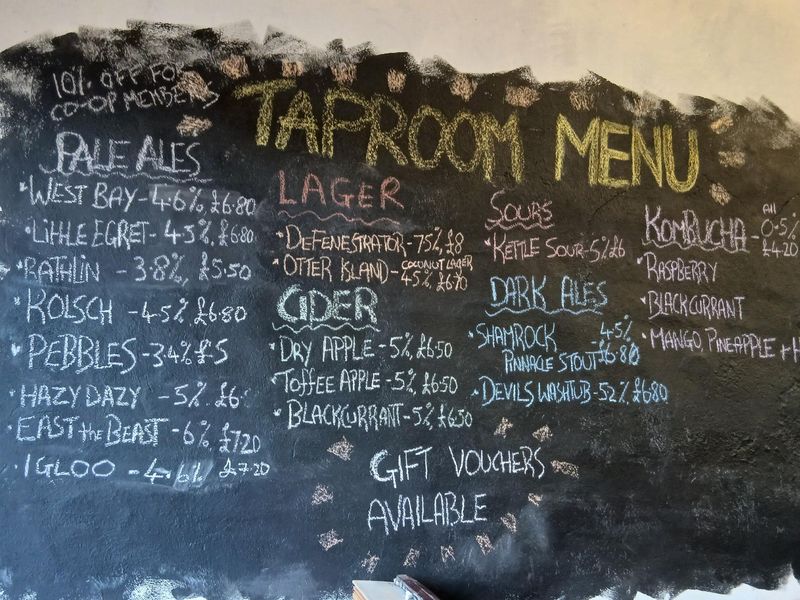 10% OFF FOR
CO-OP MEMBERS
TAPROOM MENU
PALE ALES
WEST BAY - 4.6%, £6.80
LITTLE EGRET - 4.5%, £6.80
RATHLIN - 3.8%, £5.50
KOLSCH - 4.5% £6.80
PEBBLES - 3.4% £5
HAZY DAZY - 5%. £6
EAST the BEAST - 6% £7.20
IGLOO - 4.6% £7.20
LAGER
DEFENESTRATOR - 7.5%, £8
OTTER ISLAND - COCONUT LAGER
4.5%, £6.70
CIDER
DRY APPLE - 5%, £6.50
TOFFEE APPLE - 5%, £6.50
BLACKCURRANT - 5%, £6.50
SOURS
KETTLE SOUR - 5% £6
DARK ALES
SHAMROCK 4.5%
PINNACLE STOUT £6.80
DEVILS WASHTUB - 5.2% £6.80
KOMBUCHA - All
0.5%
£4.20
RASPBERRY
BLACKCURRANT
MANGO, PINEAPPLE +
GIFT VOUCHERS
AVAILABLE